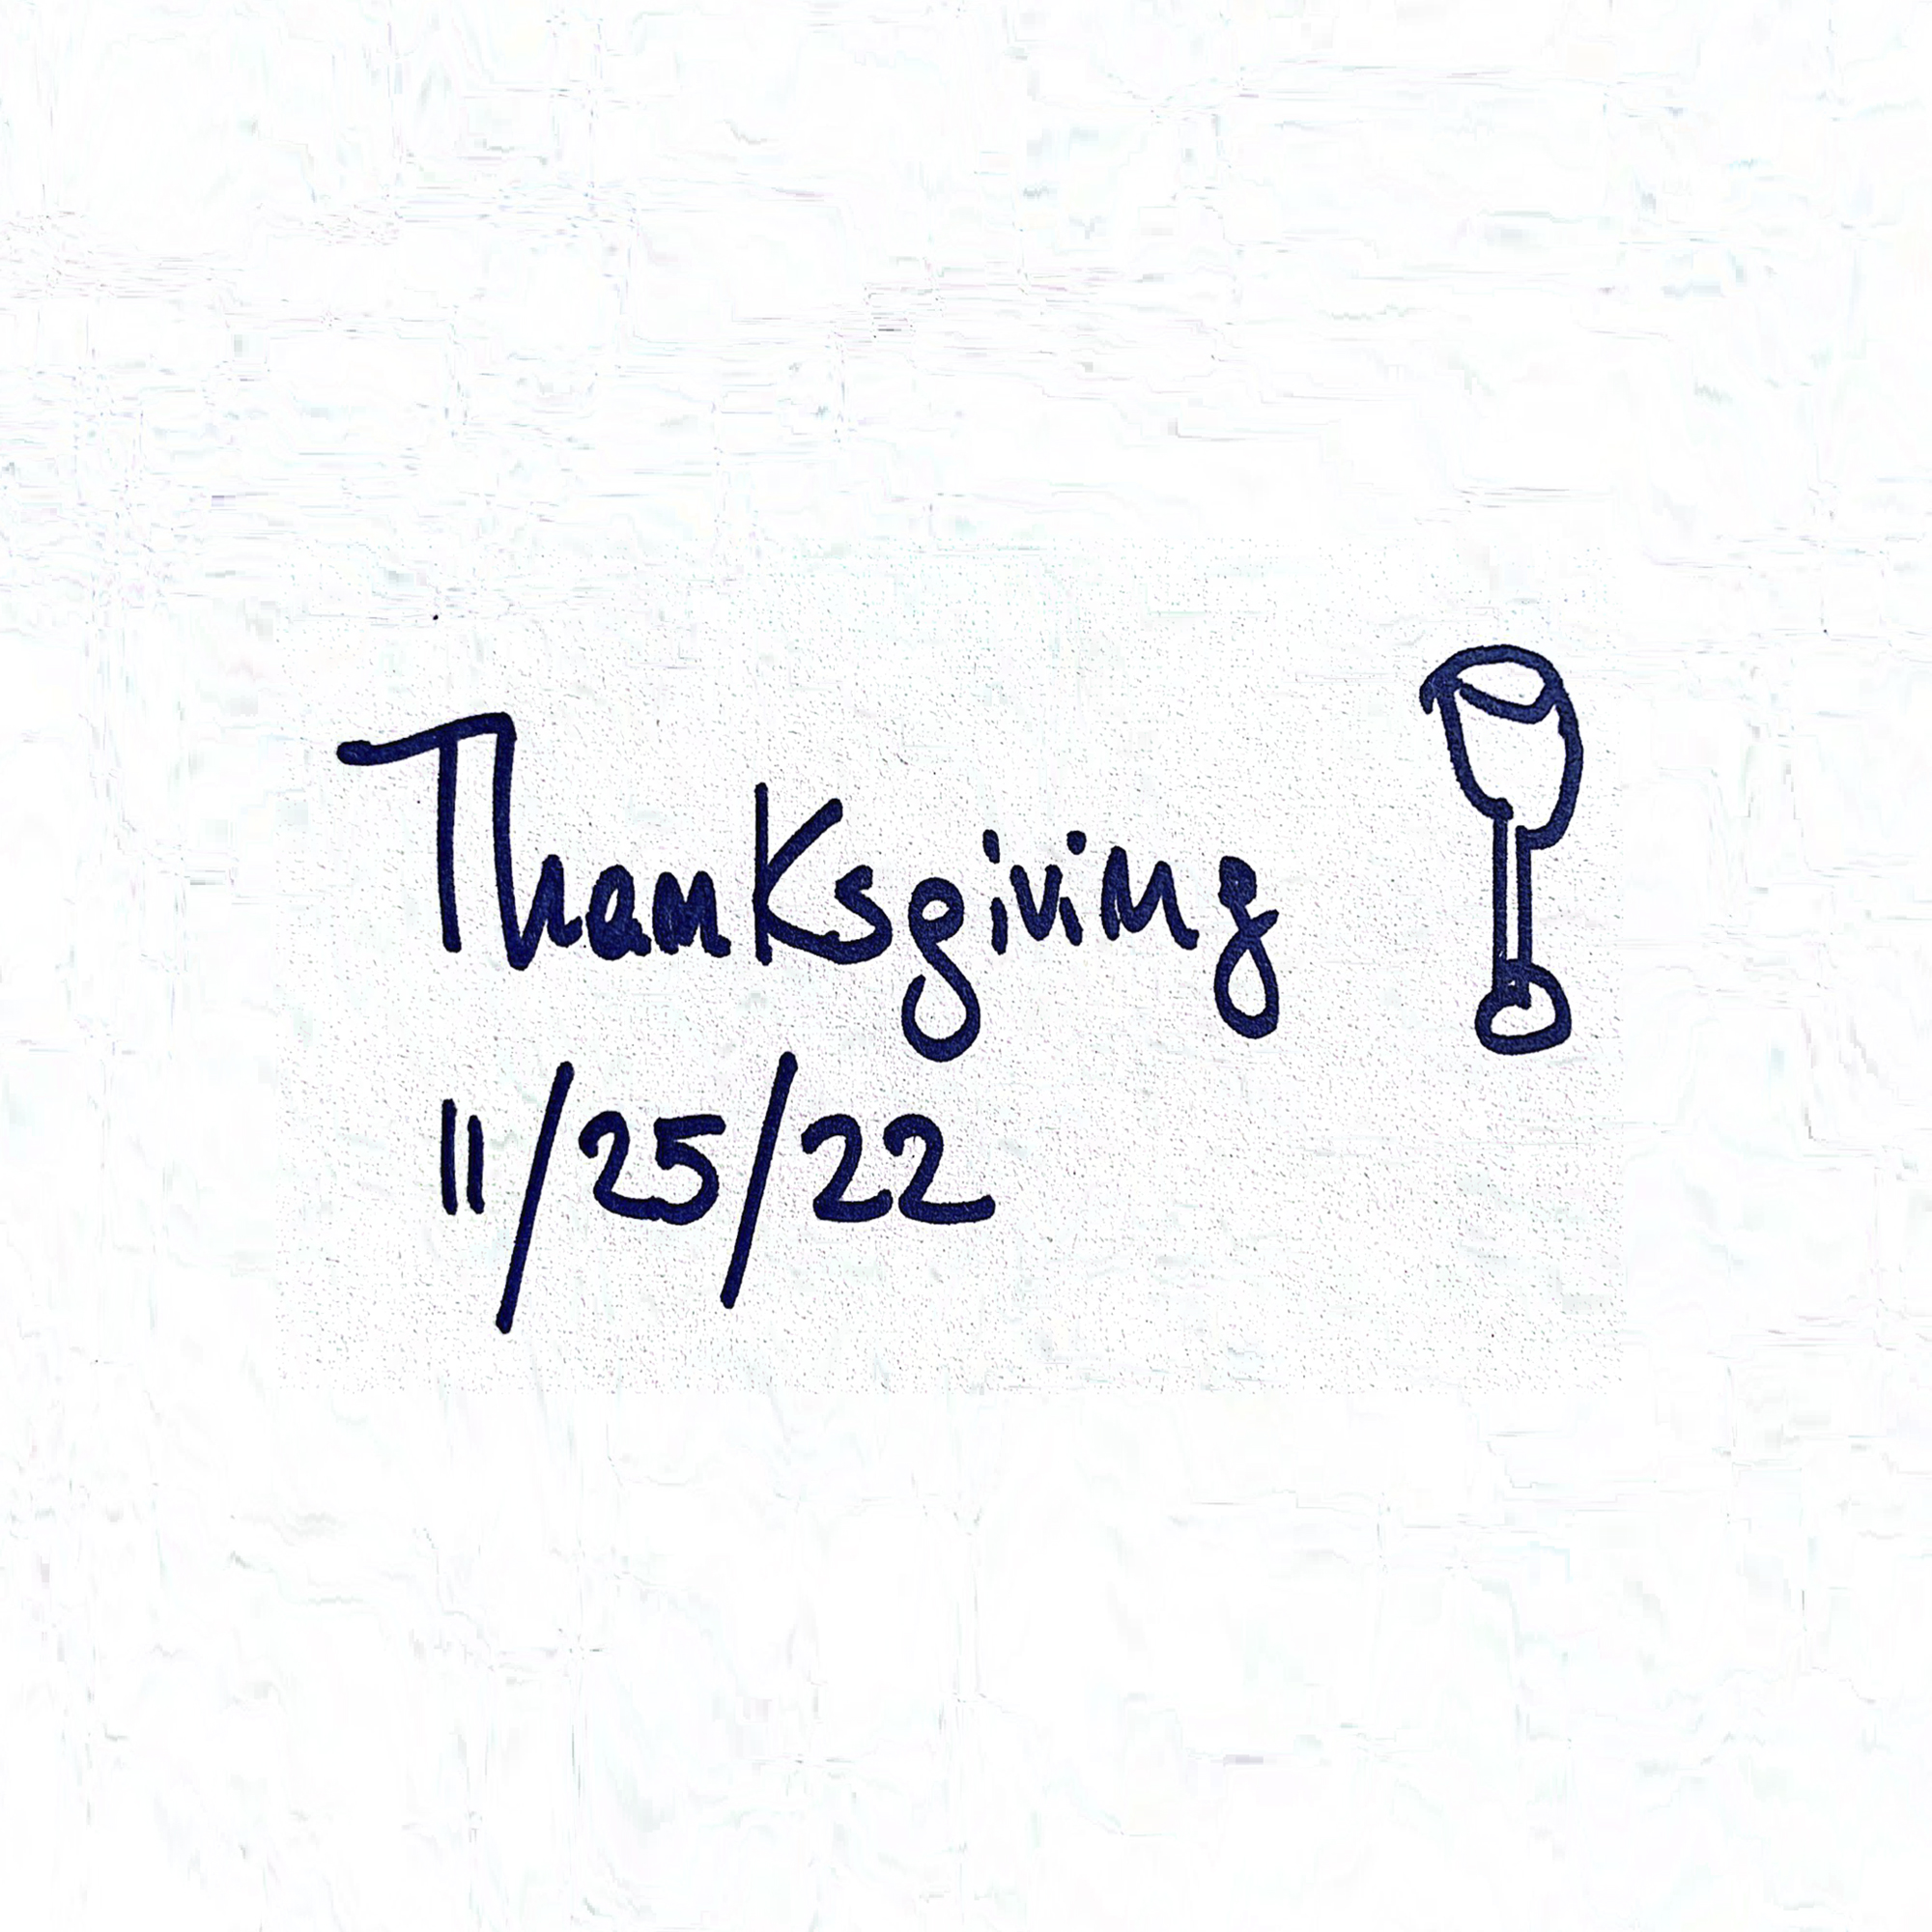 Thanksgiving
11/25/22